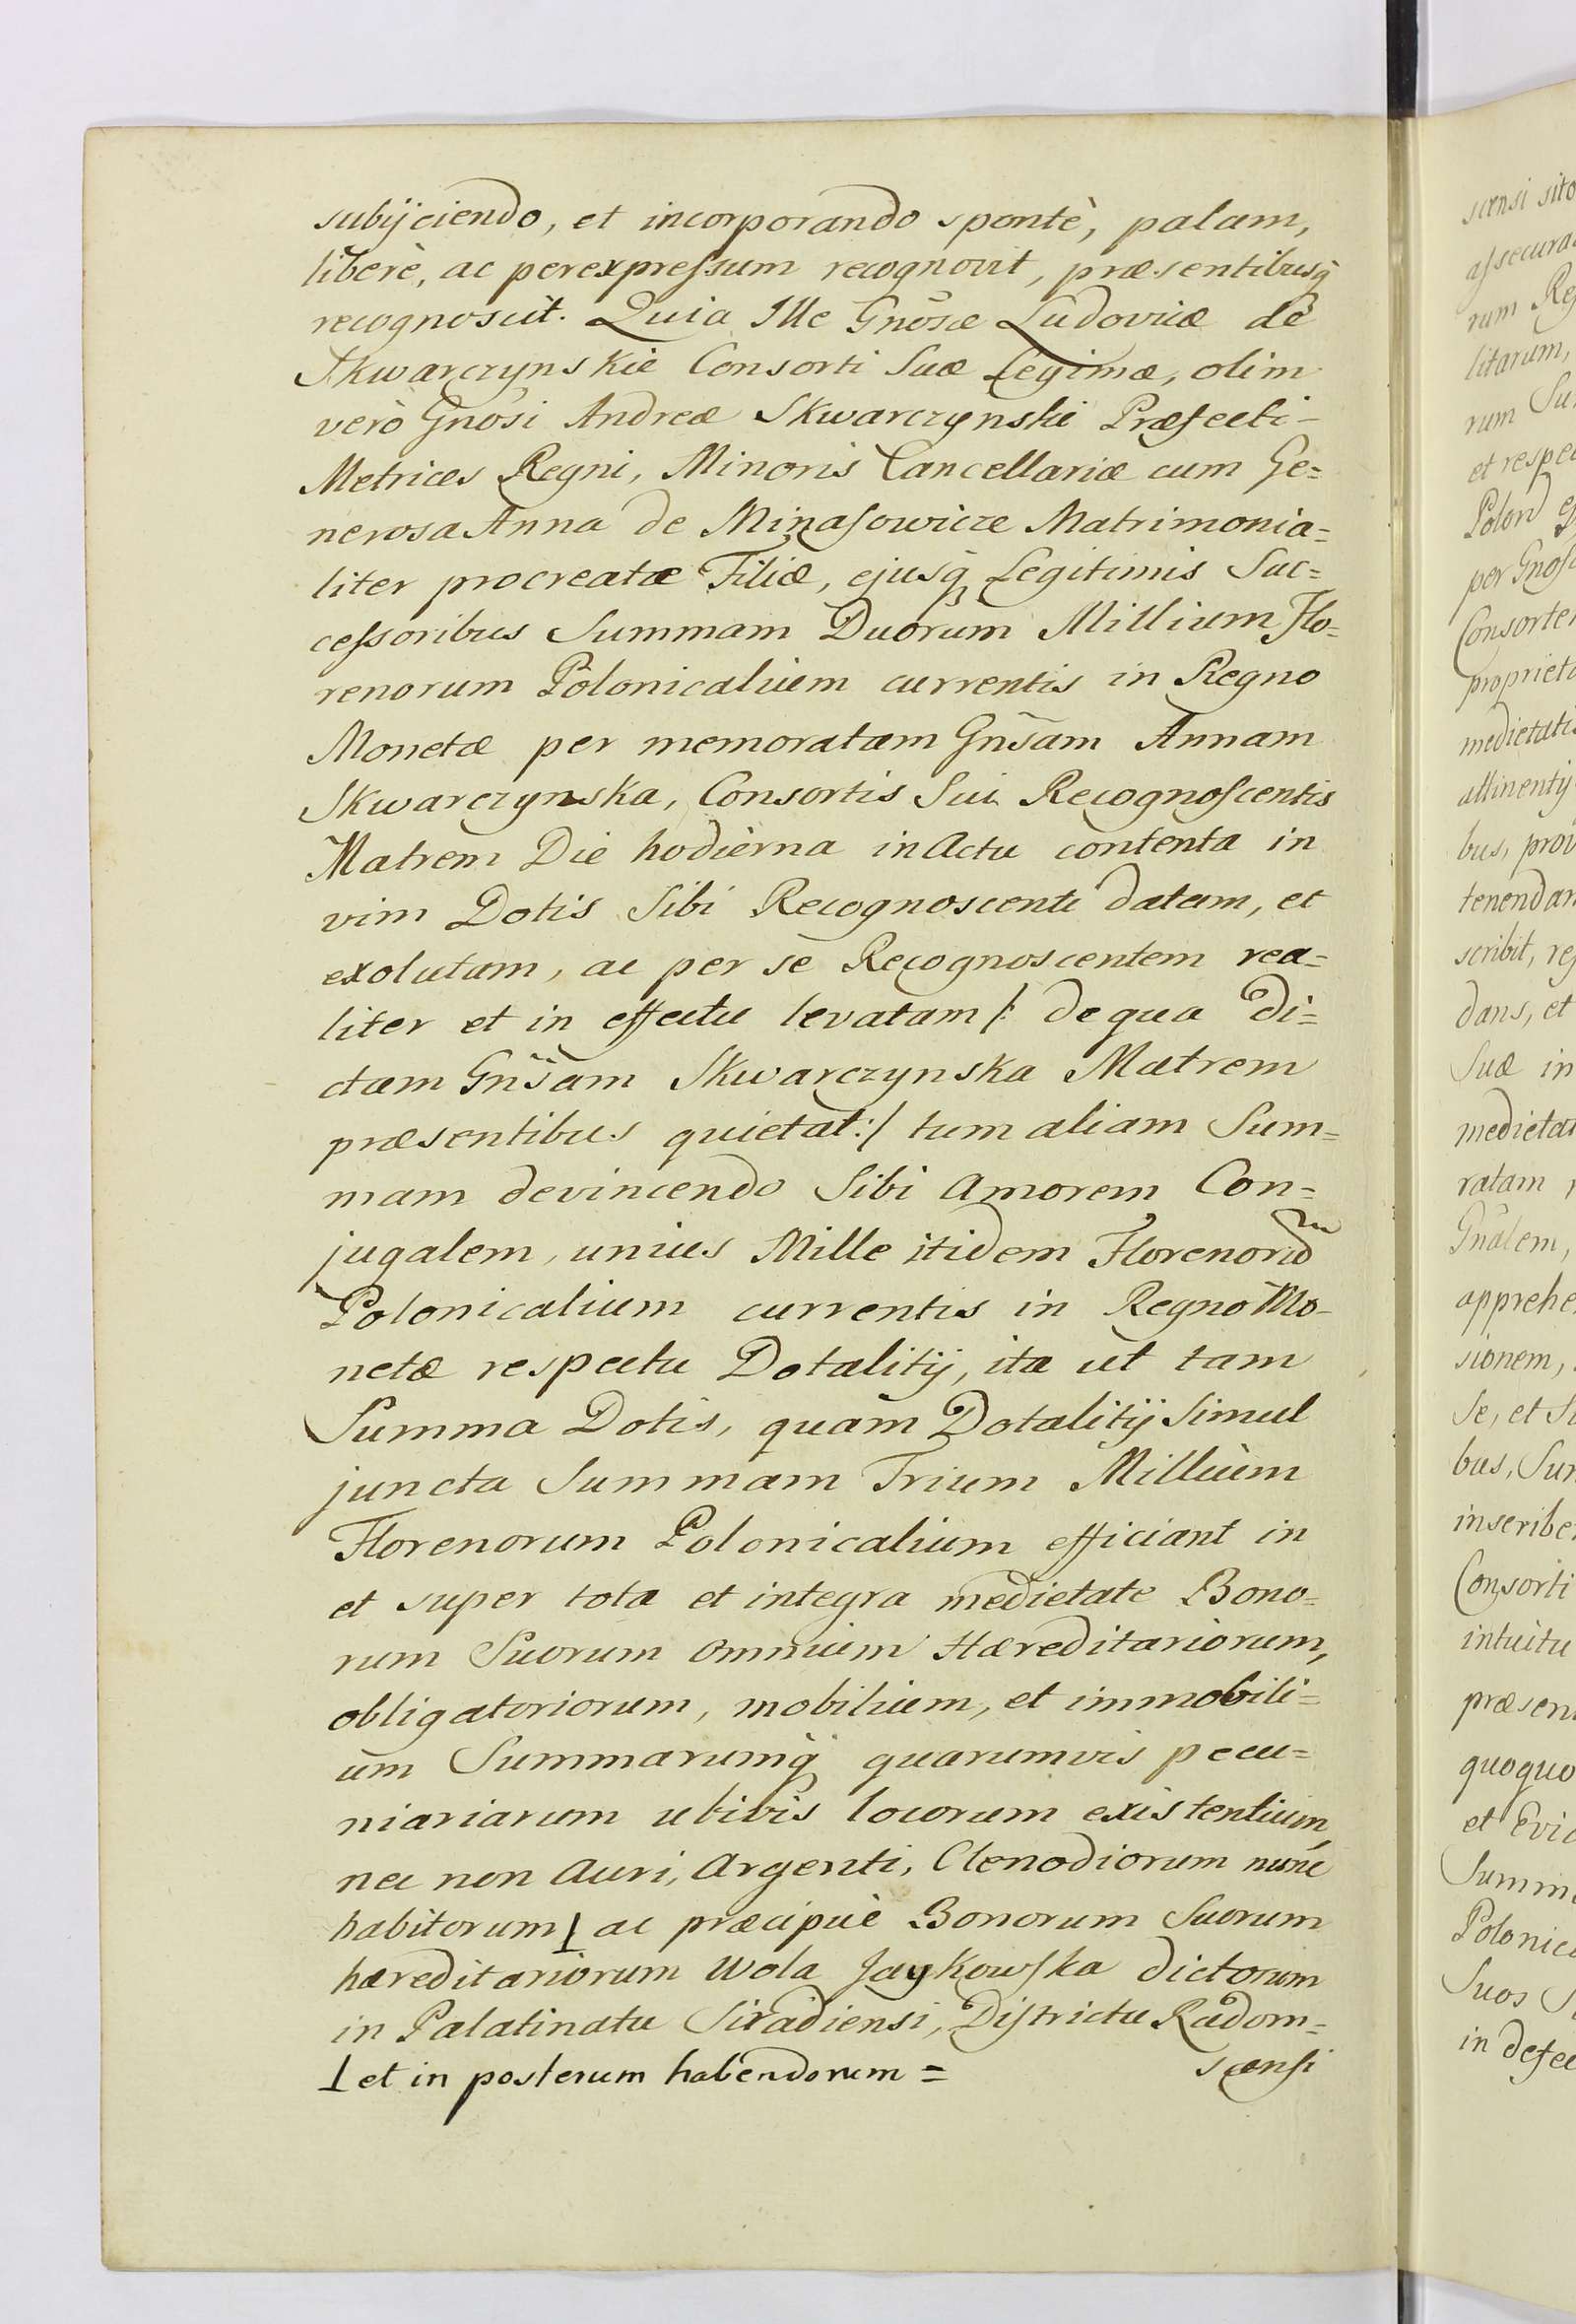 subijciendo, et incorporando spontè, palam,
liberè, ac perexpressum recognovit, præsentibusq̃
recognoscit. Quia Ille Gnõsæ Ludovicæ de
Skwarczynskie Consorti Suæ Legimæ, olim
verò Gnõsi Andreæ Skwarczynski Præfecti-
Metrices Regni, Minoris Cancellariæ cum Ge=
nerosa Anna de Minasowicze Matrimonia=
liter procreatæ Filiæ, ejusq̃ Legitimis Suc=
cessoribus Summam Duorum Millium Flo=
renorum Polonicalium currentis in Regno
Monetæ per memoratam Gñsam Annam
Skwarczynska, Consortis Sui Recognoscentis
Matrem Die hodierna in Actu contenta in
vim Dotis Sibi Recognoscenti datam, et
exolutam, ac per se Recognoscentem rea=
liter et in effectu levatam /: de qua di=
ctam Gñsam Skwarczynska Matrem
præsentibus quietat :/ tum aliam Sum=
mam devincendo Sibi Amorem Con=
jugalem, unius Mille itidem Florenorũ
Polonicalium currentis in Regno Mo-
netæ respectu Dotalitij, ita ut tam
Summa Dotis, quam Dotalitij Simul
juncta Summam Trium Millium
Florenorum Polonicalium efficiant in
et super tota et integra medietate Bono=
rum Suorum omnium Hæreditariorum,
obligatoriorum, mobilium, et immobili=
um Summarumq̃ quarumvis pecu=
niariarum ubivis locorum existentium,
nec non Auri, Argenti, Clenodiorum nunc
habitorum ⊥ ac præcipuè Bonorum Suorum
hæreditariorum Wola Jaykowska dictorum
in Palatinatu Siradiensi, Districtu Radom=
⊥ et in posterum habendorum = scensi

scensi sito
assecura
rum Reg
litarum,
rum Su
et respec
Polon
per Gnosa
Consorte
proprieta
medietati
attinentij
bus, prov
tenendar
scribit, re
dans, et
Suæ in
medieta
ratam
Gnãlem,
apprehe
sionem,
Se, et Su
bus, Sum
inscribe
Consorti
intuitu
præsen
quoquo
et Evic
Summ
Polonica
Suos S
in defec